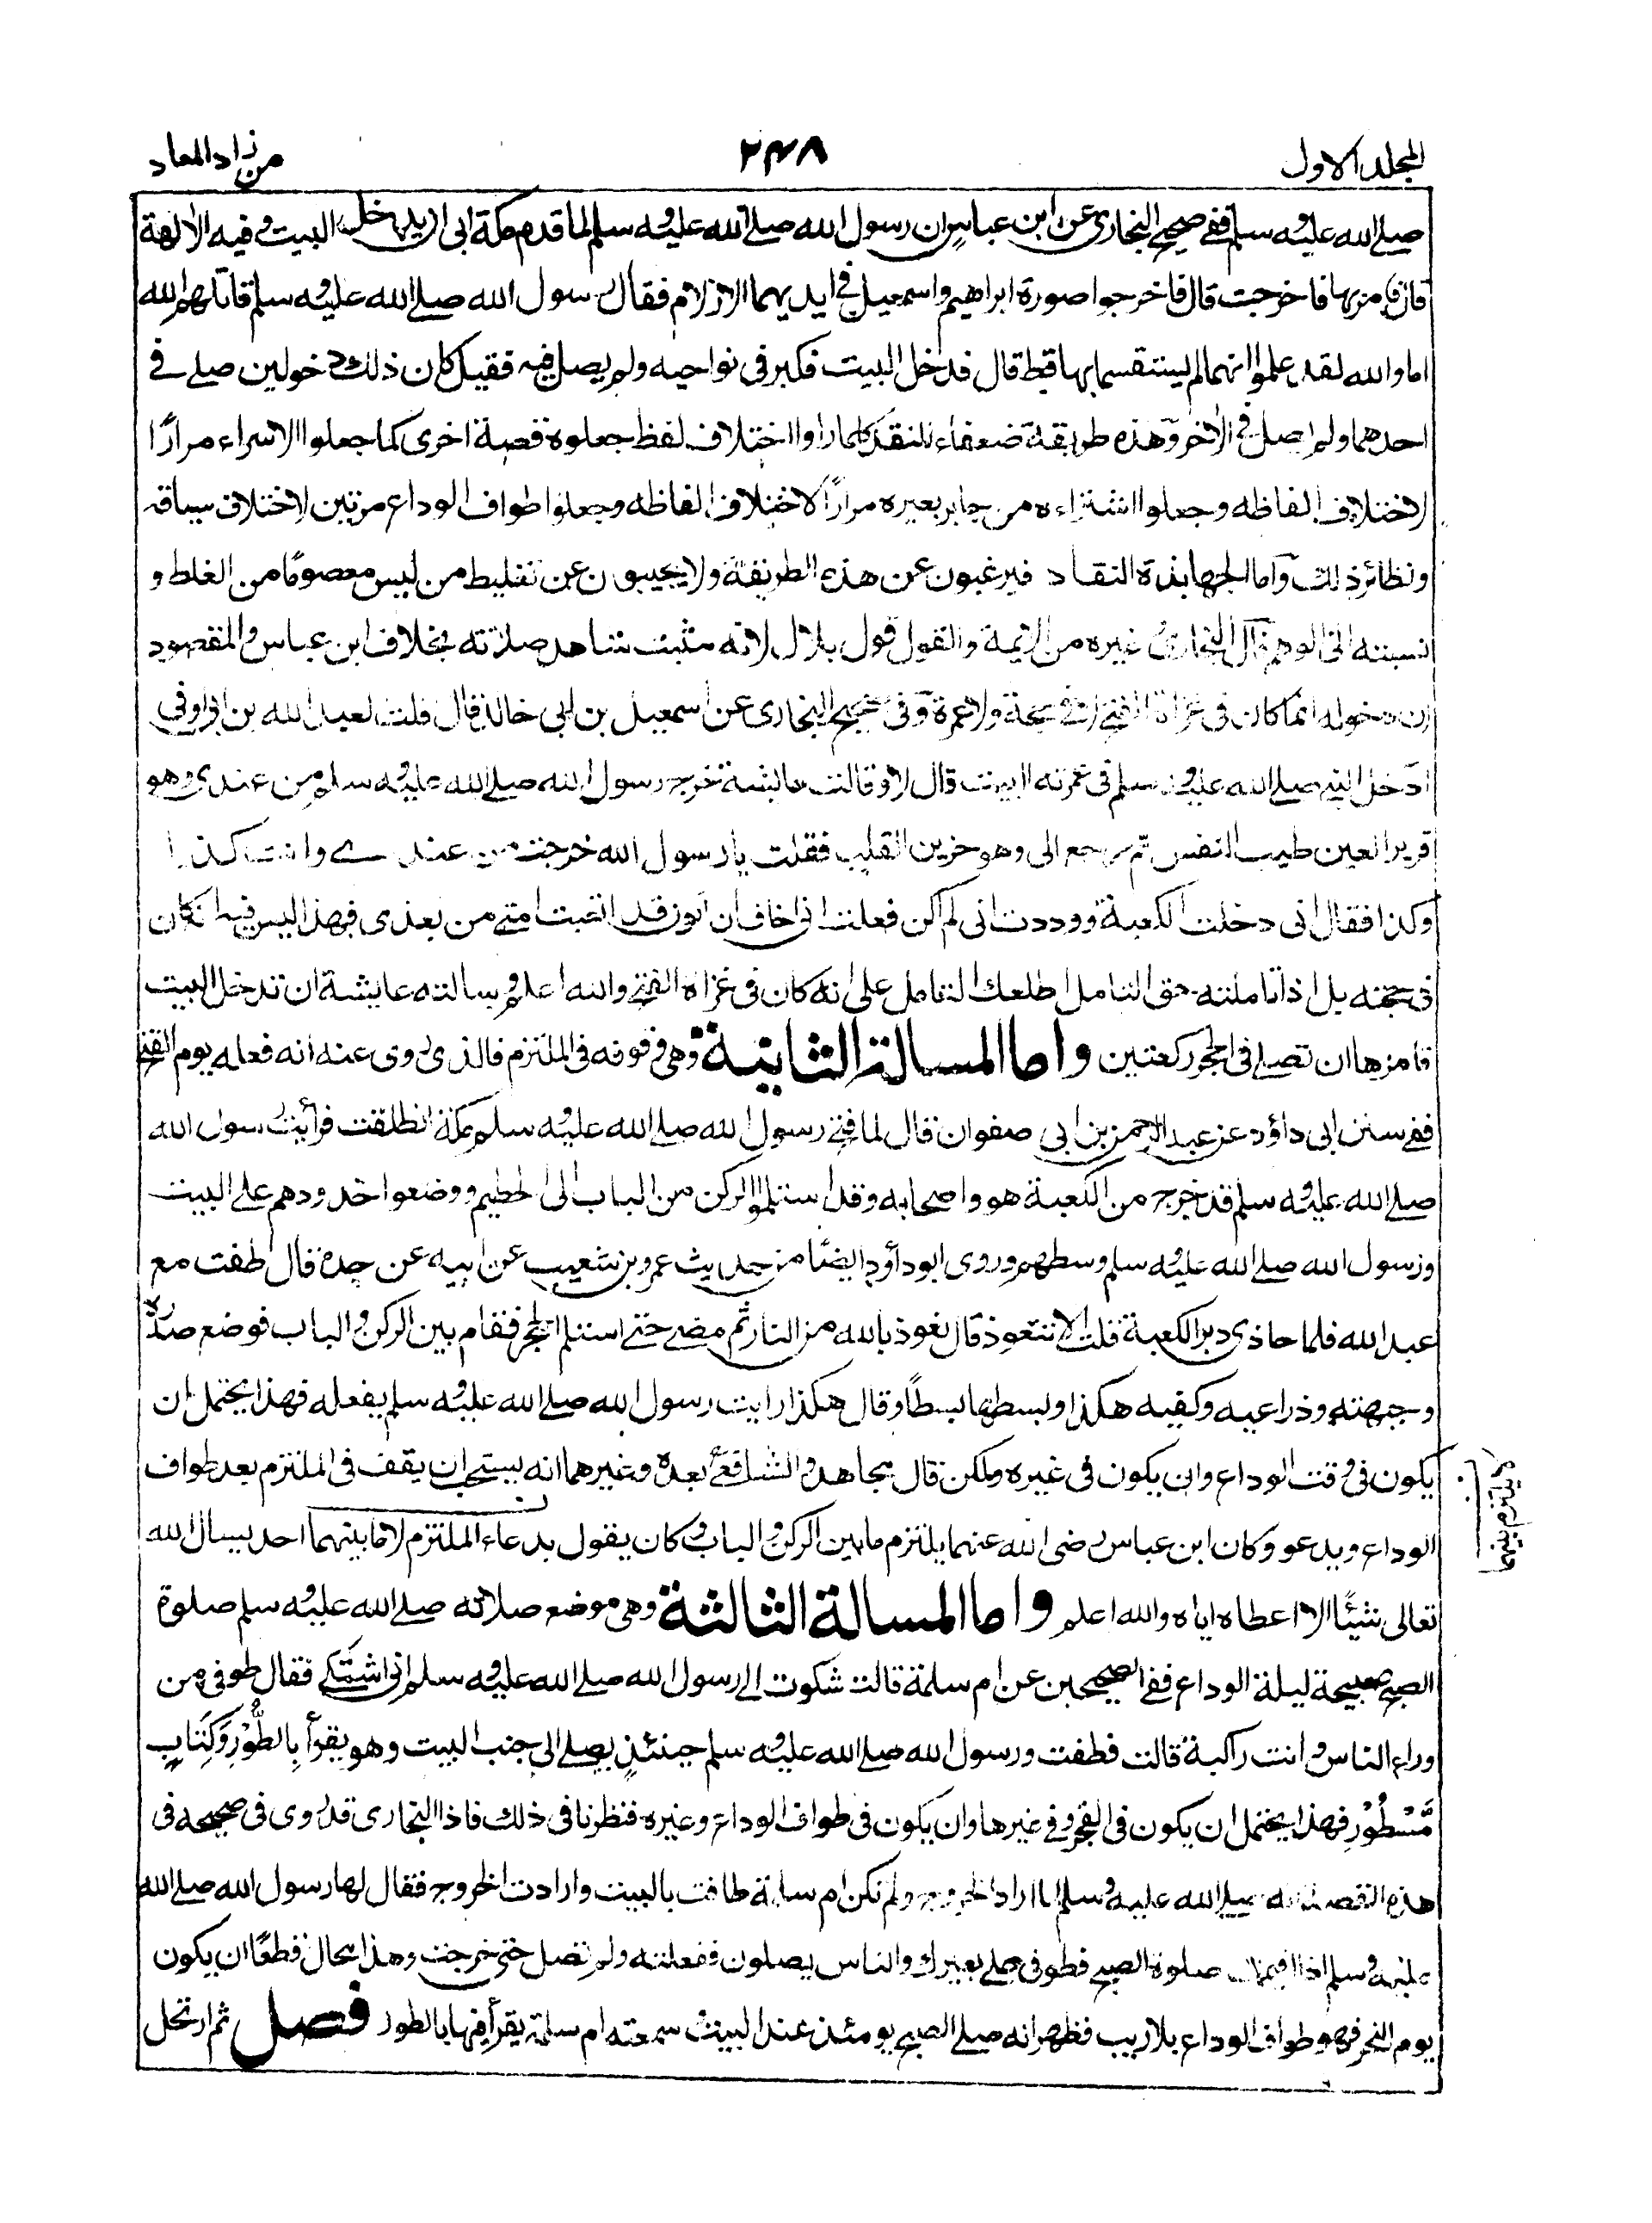 المجلد الاول
٢٤٨
من زاد المعاد
صلے الله عليه وسلم ففے صحيح البخاري عن ابن عباس ان رسول الله صلے الله عليه وسلم لما قدم مكة ابى ان يدخل البيت وفيه الالهة
قال فامر بها فاخرجت قال فاخرجوا صورة ابراهيم واسمعيل في ايديهما الازلام فقال رسول الله صلے الله عليه وسلم قاتلهم الله
اما والله لقد علموا انهما لم يستقسما بها قط قال فدخل البيت فكبر فى نواحيه ولم يصل فيه فقيل كان ذلك دخولين صلے فے
احدهما ولم يصل فى الآخر وهذه طريقة ضعفاء النقد كلما راوا اختلاف لفظ جعلوه قصة اخرى كما جعلوا الاسراء مرارًا
لاختلاف الفاظه وجعلوا اشتراءه من جابر بعيره مرارًا لاختلاف الفاظه وجعلوا طواف الوداع مرتين لاختلاف سياقه
ونظائر ذلك وآما الجهابذة النقاد فيرغبون عن هذه الطريقة ولا يجيبون عن تغليط من ليس معصومًا من الغلط و
نسبته الى الوهم قال البخارى وغيره من الايمة والقول قول بلال لانه مثبت شاهد صلاته بخلاف ابن عباس والمقصود
ان دخوله انما كان فى غزاة الفتح لا فى حجة ولا عمرة وفى صحيح البخارى عن اسمعيل بن ابى خالد قال قلت لعبد الله بن ابى اوفى
ادخل النبي صلے الله عليه وسلم فى عمرته البيت قال لا وقالت عايشة خرج رسول الله صلے الله عليه وسلم من عندى وهو
قرير العين طيب النفس ثم رجع الى وهو حزين القلب فقلت يا رسول الله خرجت من عندے وانت كذا
وكذا فقال انى دخلت الكعبة ووددت انى لم اكن فعلت انى اخاف ان اكون قد اتعبت امتى من بعدى فهذا ليس فيه انه كان
فى حجته بل اذا تاملته حق التامل اطلعك التامل على انه كان فى غزاة الفتح والله اعلم وسالته عايشة ان تدخل البيت
فامرها ان تصلے فى الحجر ركعتين واما المسالة الثانية وهى وقوفه فى الملتزم فالذى روى عنه انه فعله يوم الفتح
ففے سنن ابى داؤد عن عبد الرحمن بن ابى صفوان قال لما فتح رسول الله صلے الله عليه وسلم مكة انطلقت فرأيت رسول الله
صلے الله عليه وسلم قد خرج من الكعبة هو واصحابه وقد استلموا الركن من الباب الى الحطيم ووضعوا خدودهم على البيت
ورسول الله صلے الله عليه وسلم وسطهم وروى ابو داؤد ايضًا من حديث عمرو بن شعيب عن ابيه عن جده قال طفت مع
عبد الله فلما حاذى دبر الكعبة قلت الا تتعوذ قال نعوذ بالله من النار ثم مضے حتے استلم الحجر فقام بين الركن والباب فوضع صدره
وجبهته وذراعيه وكفيه هكذا وبسطها بسطًا وقال هكذا رايت رسول الله صلے الله عليه وسلم يفعله فهذا يحتمل ان
يكون فى وقت الوداع وان يكون فى غيره ولكن قال مجاهد والشافعى بعده وغيرهما انه يستحب ان يقف فى الملتزم بعد طواف
الوداع ويدعو وكان ابن عباس رضى الله عنهما يلتزم ما بين الركن والباب وكان يقول بدعاء الملتزم لا ما بينهما احد يسال الله
لا يلتزم بينهما
تعالى شيئًا الا اعطاه اياه والله اعلم واما المسالة الثالثة وهى موضع صلاته صلے الله عليه وسلم صلوة
الصبح صبيحة ليلة الوداع ففے الصحيحين عن ام سلمة قالت شكوت الى رسول الله صلے الله عليه وسلم انى اشتكے فقال طوفى من
وراء الناس وانت راكبة قالت فطفت ورسول الله صلے الله عليه وسلم حينئذٍ يصلے الى جنب البيت وهو يقرأ بِالطُّوْرِ وَكِتَابٍ
مَّسْطُوْرٍ فهذا يحتمل ان يكون فى الفجر وفى غيرها وان يكون فى طواف الوداع وغيره فنظرنا فى ذلك فاذا البخارى قد روى فى صحيحه فى
هذه القصة انه صلے الله عليه وسلم لما اراد الخروج ولم تكن ام سلمة طافت بالبيت وارادت الخروج فقال لها رسول الله صلے الله
عليه وسلم اذا اقيمت صلوة الصبح فطوفى على بعيرك والناس يصلون ففعلته ولم تصل حتى خرجت وهذا محال قطعًا ان يكون
يوم النحر فهو طواف الوداع بلا ريب فظهر انه صلے الصبح يومئذ عند البيت سمعته ام سلمة يقرأ فيها بالطور فصل ثم ارتحل